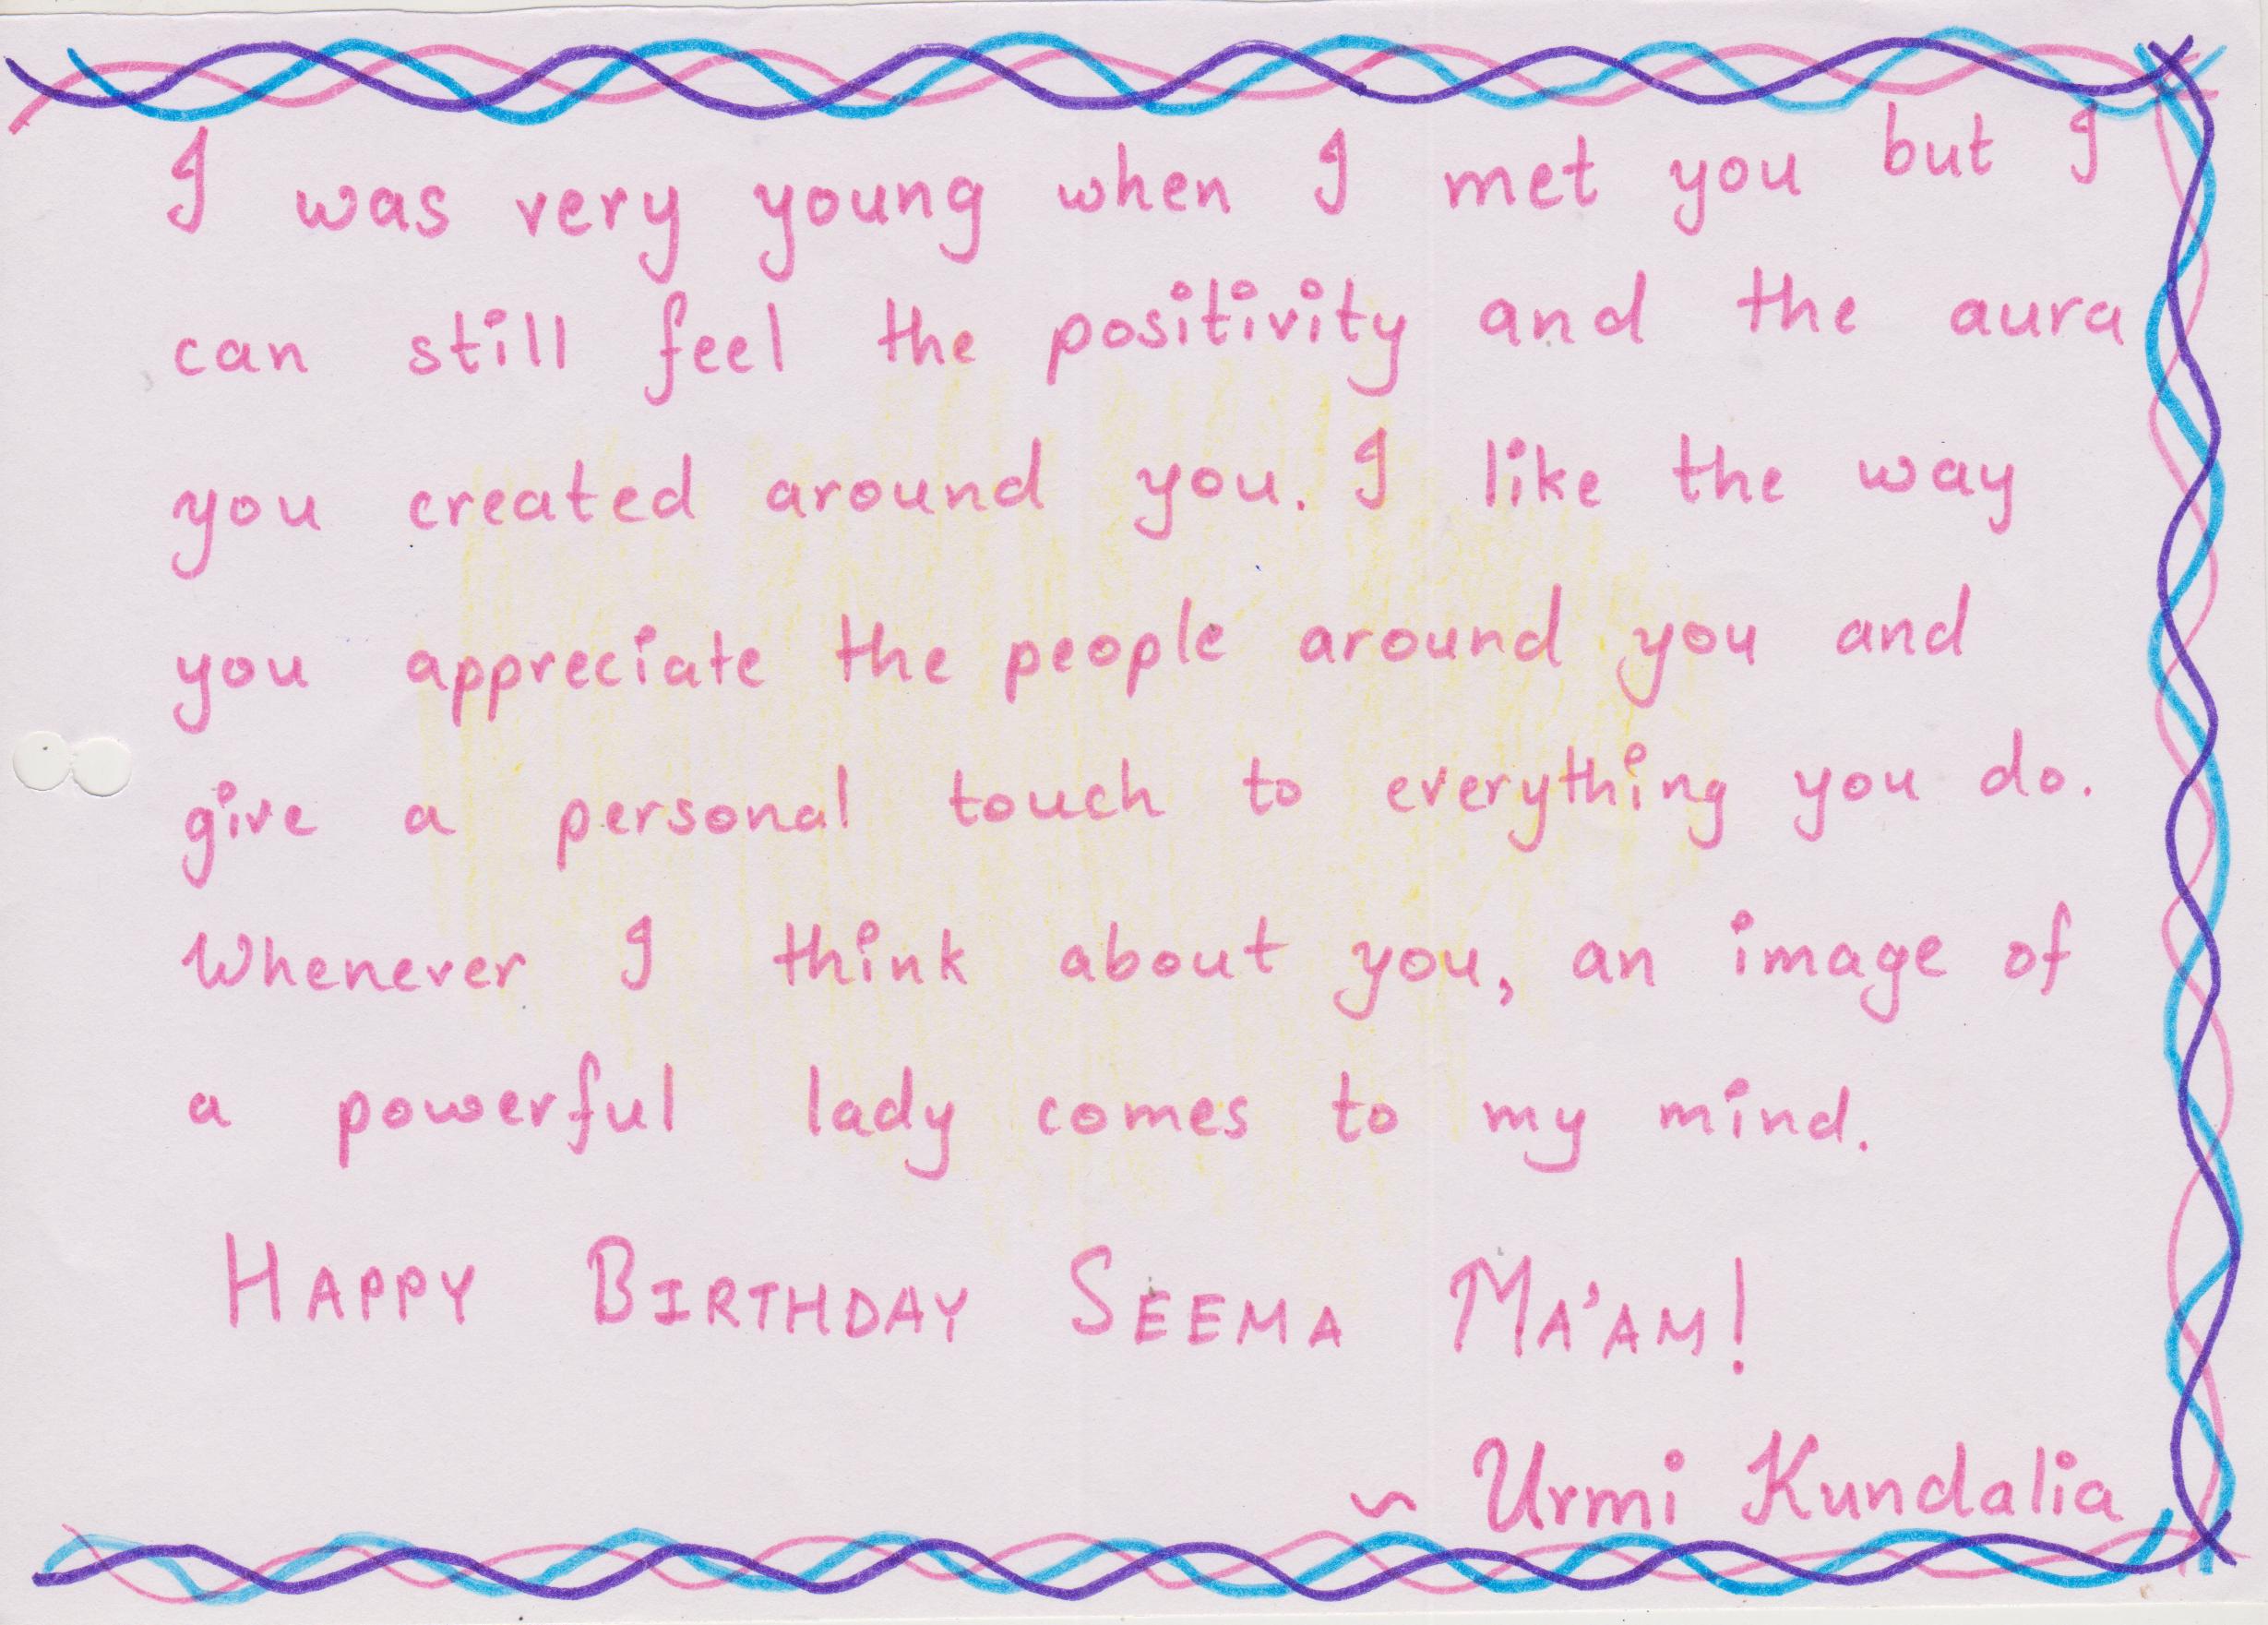 I was very young when I met you but I
can still feel the positivity and the aura
you created around you. I like the way
you appreciate the people around you and
give a personal touch to everything you do.
Whenever I think about you, an image of
a powerful lady comes to my mind.
HAPPY BIRTHDAY SEEMA MA'AM!
~ Urmi Kundalia